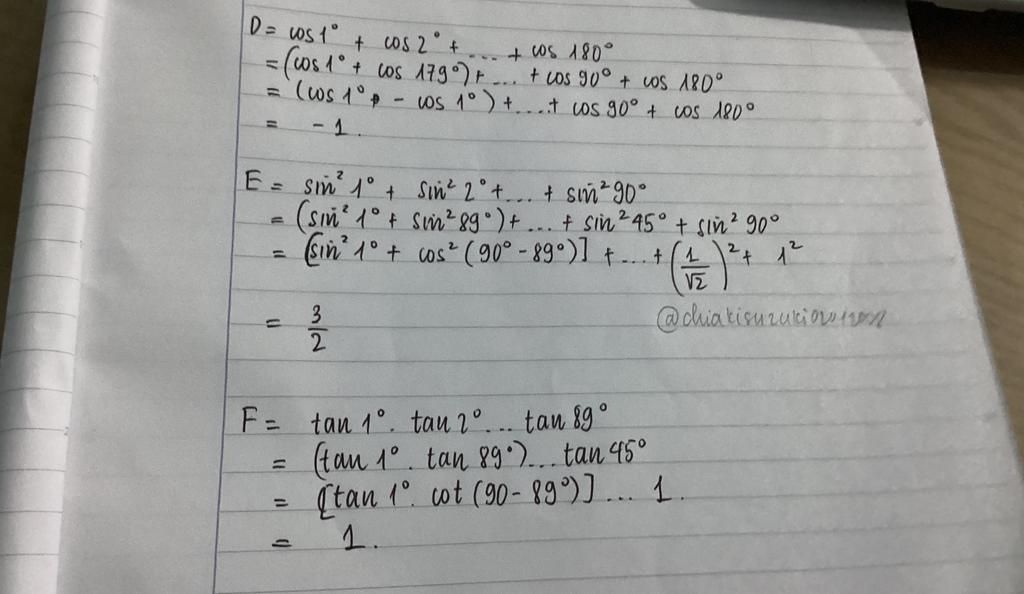 D = cos 1° + cos 2° + .... + cos 180°
= (cos 1° + cos 179°) + ... + cos 90° + cos 180°
= (cos 1° + - cos 1°) + ... + cos 90° + cos 180°
= - 1.
E = sin² 1° + sin² 2° + ... + sin² 90°
= (sin² 1° + sin² 89°) + ... + sin² 45° + sin² 90°
= [sin² 1° + cos² (90° - 89°)] + ... + (1/√2)² + 1²
= 3/2
F = tan 1° . tan 2° ... tan 89°
= (tan 1° . tan 89°) ... tan 45°
= [tan 1° . cot (90 - 89°)] ... 1.
= 1.